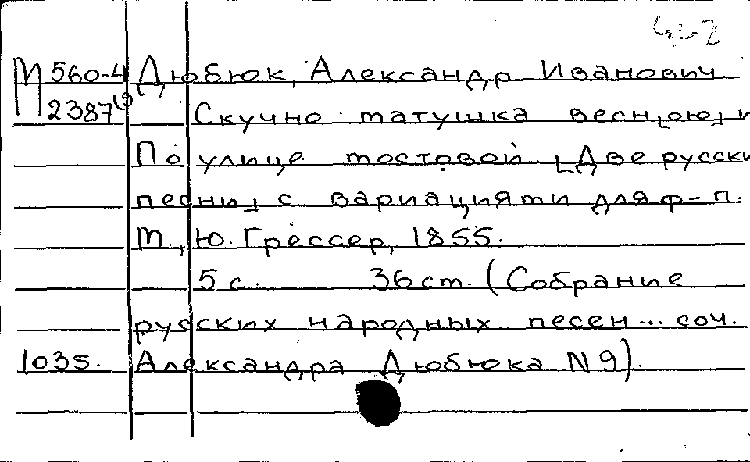 М 560-4 Дюбюк, Александр Иванович
2387 Скучно матушка весн[ою] и
По улице мостовой [Две русски
песни] с вариациями для ф-п.
М., Ю. Грессер, 1855.
5 с. 36 см. (Собрание
русских народных песен... соч.
1035. Александра Дюбюка N 9).